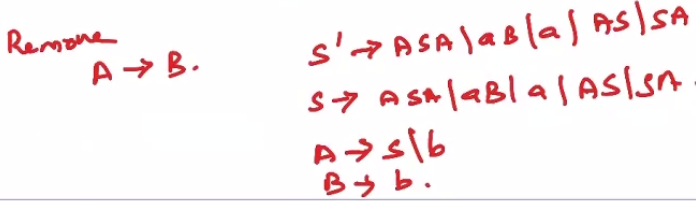 Remove
A → B.
S' → ASA | aB | a | AS | SA
S → ASA | aB | a | AS | SA.
A → S | b
B → b.